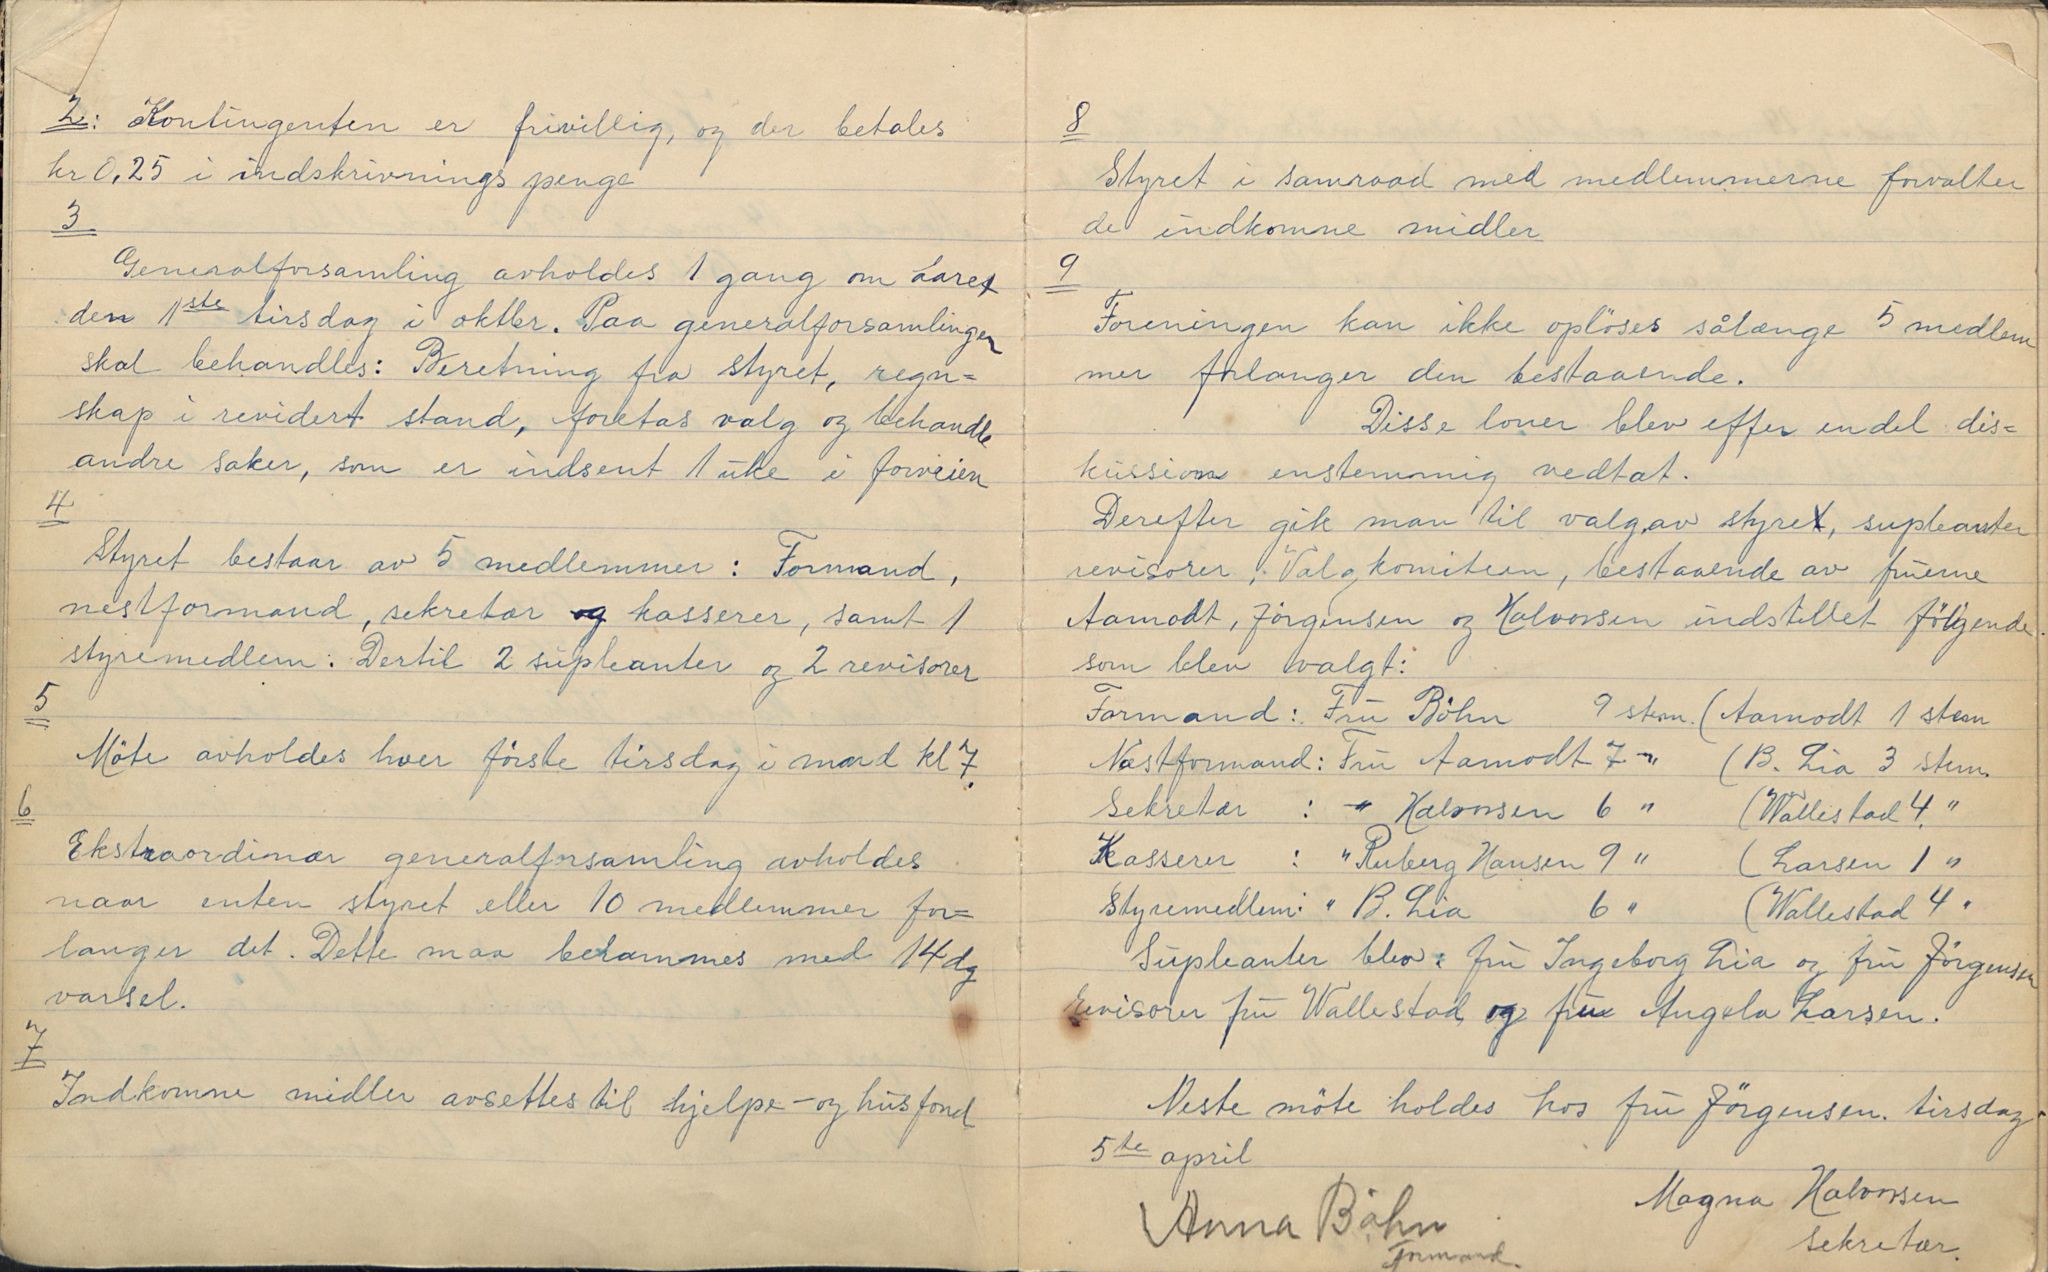 2: Kontingenten er frivillig, og der betales
kr 0,25 i indskrivnings penge
3
Generalforsamling avholdes 1 gang om aaret
den 1ste tirsdag i oktbr. Paa generalforsamlingen
skal behandles: Beretning fra styret, regn=
skap i revidert stand, foretas valg og behandle
andre saker, som er indsent 1 uke i forveien
4
Styret bestaar av 5 medlemmer: Formand,
nestformand, sekretær og kasserer, samt 1
styremedlem. Dertil 2 supleanter og 2 revisorer
5
Möte avholdes hver förste tirsdag i mnd kl 7.
6
Ekstraordinær generalforsamling avholdes
naar enten styret eller 10 medlemmer for=
langer det. Dette maa berammes med 14 dg
varsel.
7
Indkomne midler avsettes til hjelpe- og husfond
8
Styret i samraad med medlemmerne forvalter
de indkomne midler
9
Foreningen kan ikke oplöses sålænge 5 medlem
mer forlanger den bestaaende.
Disse lover blev efter endel dis=
kussion enstemmig vedtat.
Derefter gik man til valg av styret, supleanter
revisorer. Valgkomiteen, bestaaende av fruerne
Aamodt, Jörgensen og Halvorsen indstillet fölgende.
som blev valgt:
Formand: Fru Böhn 9 stem. (Aamodt 1 stem
Næstformand: Fru Aamodt 7 " (B. Lia 3 stem.
Sekretær : " Halvorsen 6 " (Wallestad 4. "
Kasserer : " Ruberg Hansen 9 " (Larsen 1 "
Styremedlem: " B. Lia 6 " (Wallestad 4 "
Supleanter blev: fru Ingeborg Lia og fru Jörgensen
Revisorer fru Wallestad og fru Angela Larsen.
Neste möte holdes hos fru Jörgensen. tirsdag
5te april
Magna Halvorsen
Anna Böhn
sekretær.
Formand.